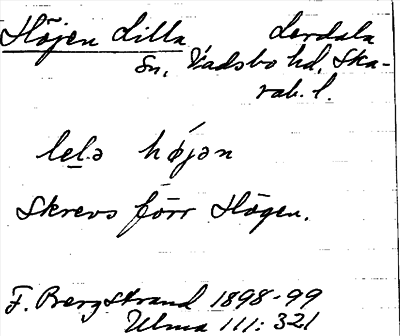 Höjen Lilla Lerdala
Sn, Vadsbo hd, Ska-
rab. l.
lelə højən
Skrevs förr Högen.
F. Bergstrand 1898-99
Ulma 111:321